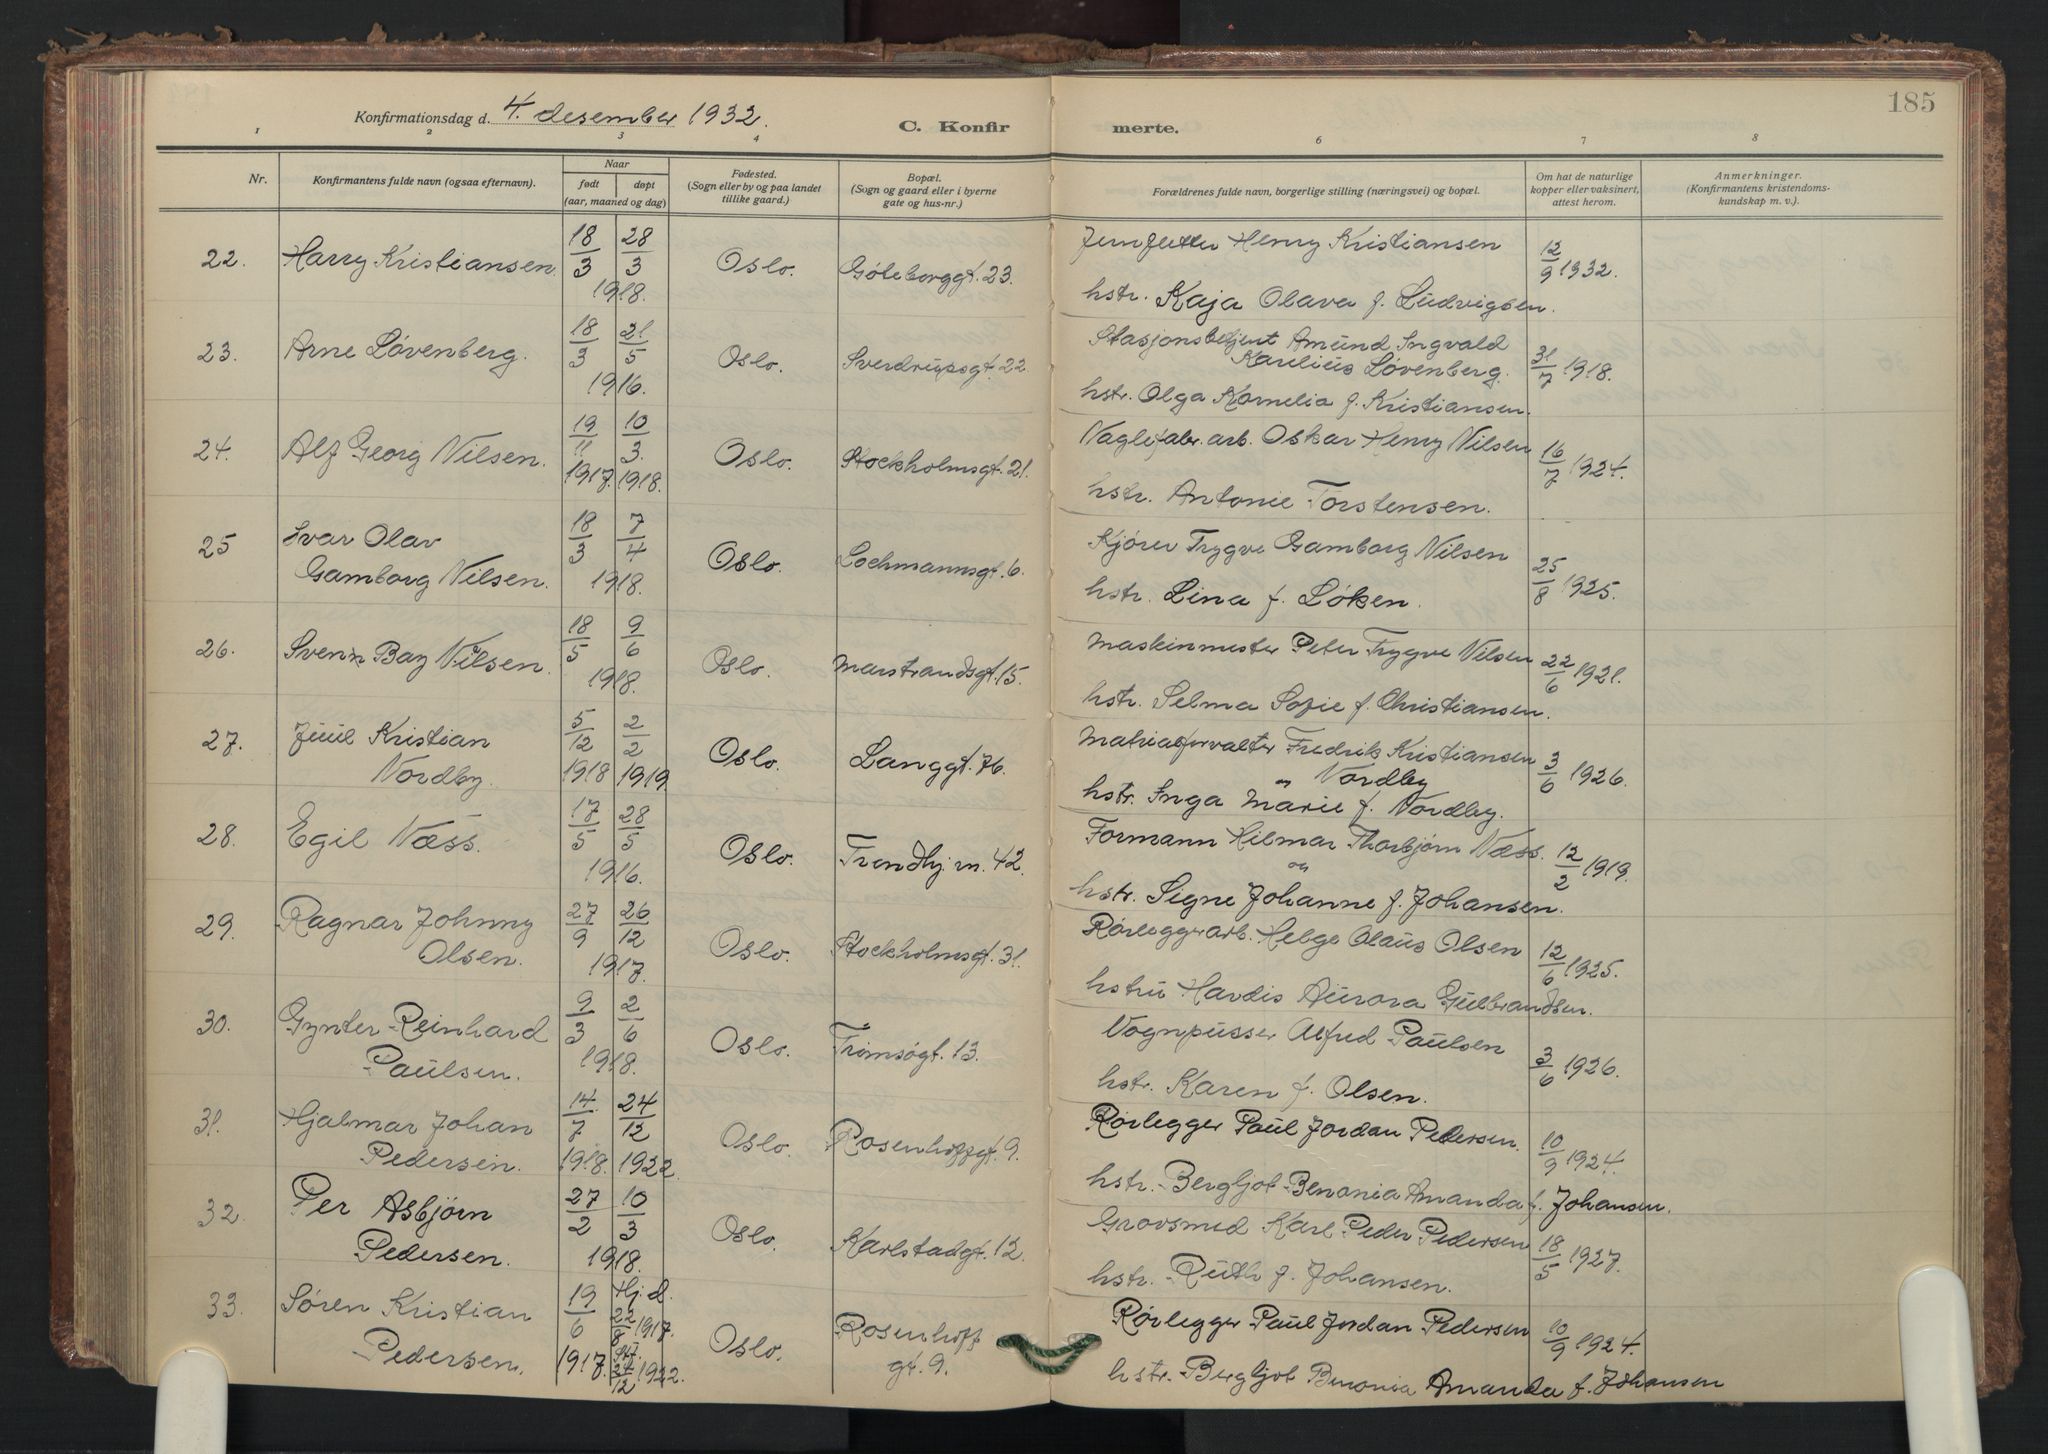 185
Konfirmationsdag d. 4. desember 1932.
C. Konfirmerte.
1 2 3 4 6 7 8
Nr.
Konfirmantens fulde navn (ogsaa efternavn).
Naar
født døpt
(aar, maaned og dag)
Fødested.
(Sogn eller by og paa landet
tillike gaard.)
Bopæl.
(Sogn og gaard eller i byerne
gate og hus-nr.)
Forældrenes fulde navn, borgerlige stilling (næringsvei) og bopæl.
Om hat de naturlige
kopper eller vaksinert,
attest herom.
Anmerkninger.
(Konfirmantens kristendoms-
kundskap m. v.).
22. Harry Kristiansen 18/3 28/3 1918. Oslo. Göteborggt. 23. Henry Kristiansen 12/9 1932.
hstr. Kaja Olava f. Ludvigsen.
23. Arne Løvenberg. 18/3 21/5 1916. Oslo. Sverdrupsgt. 22 Stasjonsbetjent Amund Ingvald
Karelius Løvenberg. 31/7 1918.
hstr. Olga Kornelia f. Kristiansen.
24. Alf Georg Nilsen. 19/11 1917. 10/3. 1918. Oslo. Stockholmsgt. 21. Naglefabr. arb. Oskar Henry Nilsen 16/7 1924.
hstr. Antonie Torstensen.
25 Ivar Olav
Gamborg Nilsen. 18/3 7/4 1918. Oslo. Lochmannsgt. 6. Kjører Trygve Gamborg Nilsen 25/8 1925.
hstr. Lina f. Løken.
26. Svenn Bay Nilsen. 18/5 9/6 1918. Oslo. Marstrandsgt. 15. Maskinmester Peter Trygve Nilsen 22/6 1921.
hstr. Selma Sofie f. Christiansen.
27. Juul Kristian
Nordby. 5/12 1918 2/2 1919 Oslo. Langgt. 76. Matrialforvalter Fredrik Kristiansen
Nordby 3/6 1926.
hstr. Inga Marie f. Nordby.
28. Egil Næss. 17/5 28/5 1916. Oslo. Trondhj. vn. 42. Formann Hilmar Thorbjørn Næss. 12/2 1919.
og
hstr. Signe Johanne f. Johansen.
29. Ragnar Johnny
Olsen. 27/9 26/12 1917. Oslo. Stockholmsgt. 31. Rørleggerarb. Helge Olaus Olsen 12/6 1925.
hstru Hardis Aurora Gulbrandsen.
30. Gynter Reinhard
Paulsen. 9/3 2/6 1918. Oslo. Tromsøgt. 13. Vognpusser Alfred Paulsen 3/6 1926.
hstr. Karen f. Olsen.
31. Hjalmar Johan
Pedersen. 14/7 1918. 24/12 1922. Oslo. Rosenhoffgt. 9. Rørlegger Paul Jordan Pedersen. 10/9 1924.
hstr. Bergljot Benonia Amanda f. Johansen.
32. Per Asbjørn
Pedersen. 27/2 10/3 1918. Oslo. Karlstadgt. 12. Grovsmed Karl Peder Pedersen 18/5 1927.
hstr. Ruth f. Johansen.
33. Søren Kristian
Pedersen. 19/6 1917. Hj. d. 22/8 1917. 24/12 1922. Oslo. Rosenhoff
gt. 9. Rørlegger Paul Jordan Pedersen 10/9 1924.
hstr. Bergljot Benonia Amanda f. Johansen